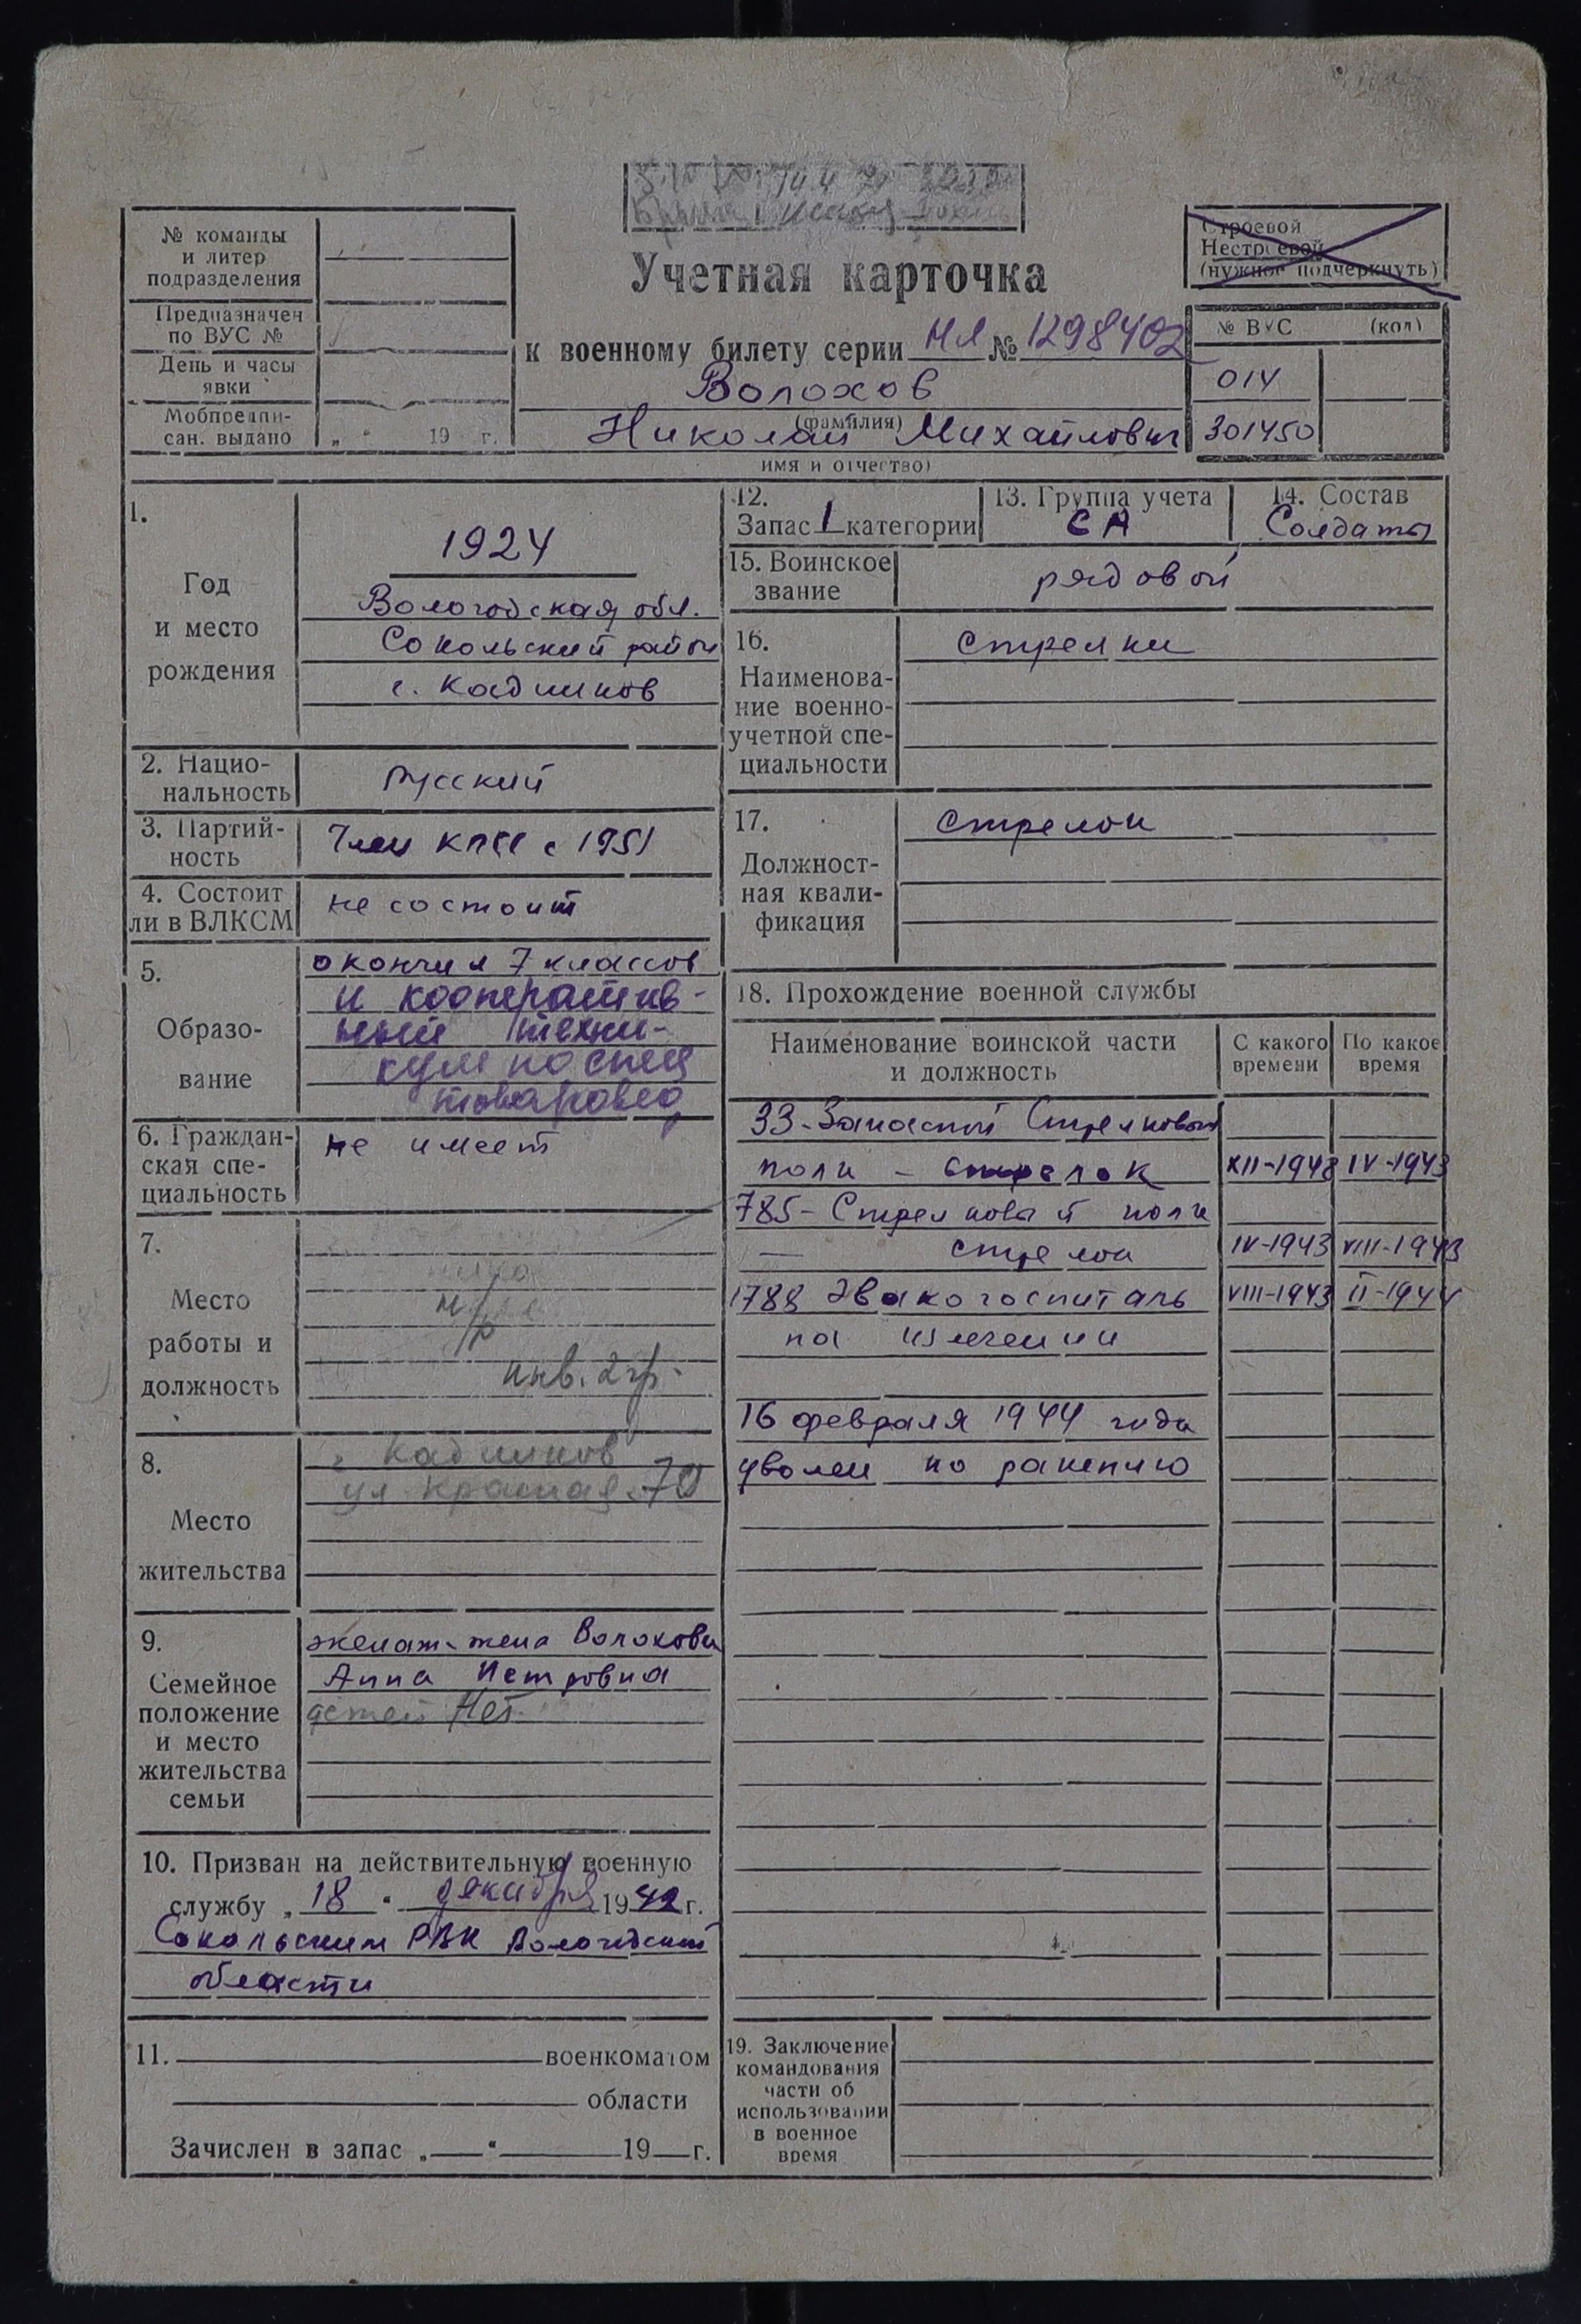 № команды
и литер
подразделения
Предназначен
по ВУС №
День и часы
явки
Мобпредпи-
сан. выдано „ “ 19 г.
Строевой
Нестроевой
(нужное подчеркнуть)
Учетная карточка
к военному билету серии НЯ № 1298402
Волохов
(фамилия)
Николай Михайлович
имя и отчество)
№ ВУС (код)
014
301450
1.
Год
и место
рождения
1924
Вологодская обл.
Сокольский район
г. Кадников
2. Нацио-
нальность
Русский
3. Партий-
ность
Член КПСС с 1951
4. Состоит
ли в ВЛКСМ
не состоит
5.
Образо-
вание
окончил 7 классов
и кооператив-
ный техни-
кум по спец
товаровед
6. Граждан-
ская спе-
циальность
не имеет
7.
Место
работы и
должность
н/р
инв. 2 гр.
8.
Место
жительства
г Кадников
ул Красная 70
9.
Семейное
положение
и место
жительства
семьи
женат-жена Волохова
Анна Петровна
детей Нет
10. Призван на действительную военную
службу „18“ декабря 1942 г.
Сокольским РВК Вологодской
области
11. военкоматом
области
Зачислен в запас „ “ 19 г.
12.
Запас 1 категории
13. Группа учета
СА
14. Состав
Солдаты
15. Воинское
звание
рядовой
16.
Наименова-
ние военно-
учетной спе-
циальности
Стрелки
17.
Должност-
ная квали-
фикация
Стрелок
18. Прохождение военной службы
Наименование воинской части
и должность
С какого
времени
По какое
время
33-Запасной Стрелковый
полк - стрелок XII-1942 IV-1943
785-Стрелковый полк
— стрелок IV-1943 VIII-1943
1788 Эвакогоспиталь VIII-1943 II-1944
на излечении
16 февраля 1944 года
уволен по ранению
19. Заключение
командования
части об
использовании
в военное
время